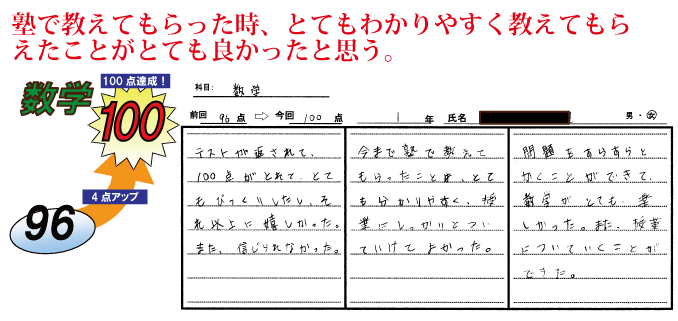 塾で教えてもらった時、とてもわかりやすく教えてもら
えたことがとても良かったと思う。
数学
100点達成！
100
4点アップ
96
科目: 数学
前回 96 点 ⇨ 今回 100 点 1 年 氏名 男・女
テストが返されて、
100点がとれて、とて
もびっくりしたし、そ
れ以上に嬉しかった。
また、信じられなかった。
今まで塾で教えて
もらったことは、とて
も分かりやすく、授
業にしっかりとつい
ていけてよかった。
問題をすらすらと
かくことができて、
数学がとても、楽
しかった。また、授業
についていくことが
できた。